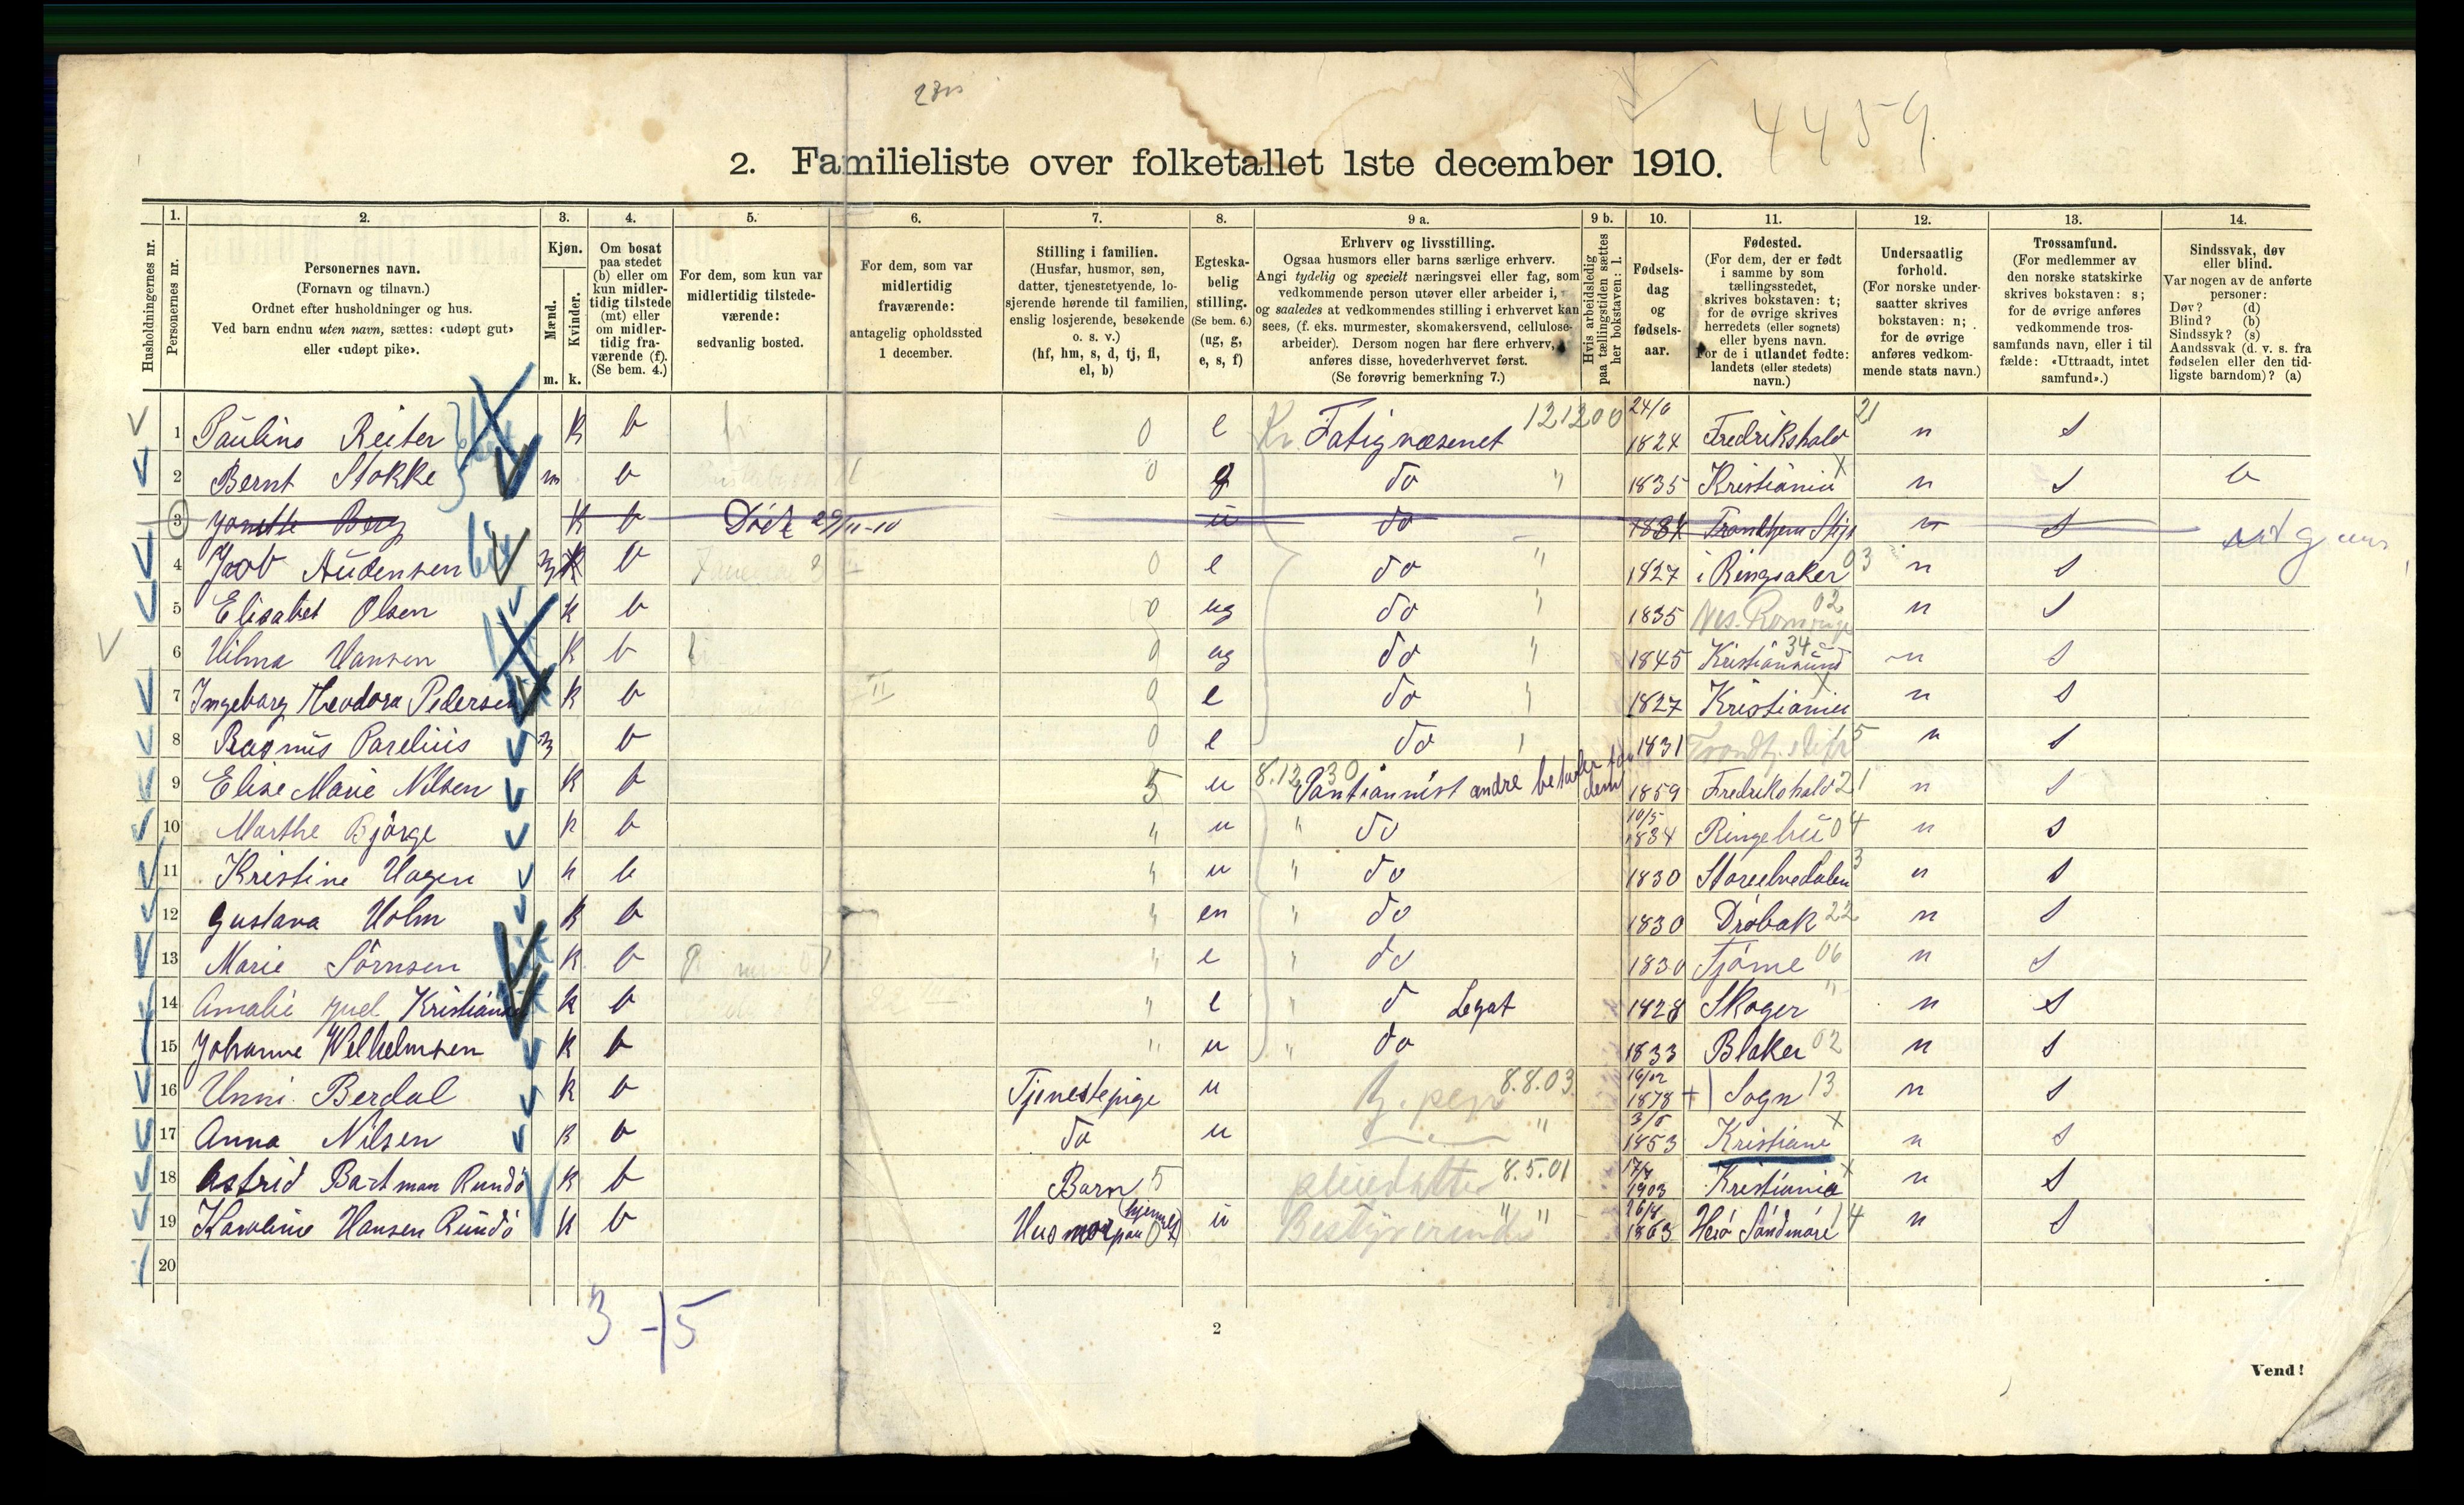 4459.
2. Familieliste over folketallet 1ste december 1910.
Husholdningernes nr.
1. Personernes nr.
2. Personernes navn. (Fornavn og tilnavn.) Ordnet efter husholdninger og hus. Ved barn endnu uten navn, sættes: «udøpt gut» eller «udøpt pike».
3. Kjøn. Mænd. m. Kvinder. k.
4. Om bosat paa stedet (b) eller om kun midler-tidig tilstede (mt) eller om midler-tidig fra-værende (f). (Se bem. 4.)
5. For dem, som kun var midlertidig tilstede-værende: sedvanlig bosted.
6. For dem, som var midlertidig fraværende: antagelig opholdssted 1 december.
7. Stilling i familien. (Husfar, husmor, søn, datter, tjenestetyende, lo-sjerende hørende til familien, enslig losjerende, besøkende o. s. v.) (hf, hm, s, d, tj, fl, el, b)
8. Egteska-belig stilling. (Se bem. 6.) (ug, g, e, s, f)
9 a. Erhverv og livsstilling. Ogsaa husmors eller barns særlige erhverv. Angi tydelig og specielt næringsvei eller fag, som vedkommende person utøver eller arbeider i, og saaledes at vedkommendes stilling i erhvervet kan sees, (f. eks. murmester, skomakersvend, cellulose-arbeider). Dersom nogen har flere erhverv, anføres disse, hovederhvervet først. (Se forøvrig bemerkning 7.)
9 b. Hvis arbeidsledig paa tællingstiden sættes her bokstaven: l.
10. Fødsels-dag og fødsels-aar.
11. Fødested. (For dem, der er født i samme by som tællingsstedet, skrives bokstaven: t; for de øvrige skrives herredets (eller sognets) eller byens navn. For de i utlandet fødte: landets (eller stedets) navn.)
12. Undersaatlig forhold. (For norske under-saatter skrives bokstaven: n; for de øvrige anføres vedkom-mende stats navn.)
13. Trossamfund. (For medlemmer av den norske statskirke skrives bokstaven: s; for de øvrige anføres vedkommende tros-samfunds navn, eller i til fælde: «Uttraadt, intet samfund».)
14. Sindssvak, døv eller blind. Var nogen av de anførte personer: Døv? (d) Blind? (b) Sindssyk? (s) Aandssvak (d. v. s. fra fødselen eller den tid-ligste barndom)? (a)
1 Pauline Reiter K b 0 e Fatigvæsenet 121200 24/6 1824 Fredrikshald 21 n s
2 Bernt Stokke m b 0 g do " 1835 Kristiania x n s b
3 Berg K b Död 29/11-10 u do n s
4 Audensen m b 0 e do " 1827 i Ringsaker 03 n s
5 Elisabet Olsen K b 0 ug do " 1835 Nes. Romerige 02 n s
6 Hilma Hansen K b 0 ug do " 1845 Kristiansund 34 n s
7 Ingeborg Theodora Pedersen K b 0 e do " 1827 Kristiania x n s
8 Rasmus Parelius m b 0 e do " 1831 n s
9 Elise Marie Nilsen K b 5 u 8.12.30 andre betaler for dem 1859 Fredrikshald 21 n s
10 Marthe Bjørge K b " u " do 10/5 1834 Ringebu 04 n s
11 Kristine Hagen K b " u " do 1830 Storelvedalen 3 n s
12 Gustava Holm K b " en " do 1830 Drøbak 22 n s
13 Marie Sørnsen K b " e " do 1830 Tjøme 06 n s
14 Amalie Juel Kristiansen K b " e " d Legat 1828 Skoger " n s
15 Johanne Wilhelmsen K b " u " do 1833 Blaker 02 n s
16 Unni Berdal K b Tjenestepige u 8.8.03 1878 Sogn 13 n s
17 Anna Nilsen K b do u " 3/5 1853 Kristiania x n s
18 Astrid Bartman Rundö K b Barn 5 pleiedatter 8.5.01 17/7 1903 Kristiania x n s
19 Karoline Hansen Rundö K b Husmor paa hjemmet 0 u Bestyrerinde " " 26/8 1863 Herø Söndmöre 14 n s
20
3 - 15
2
Vend!